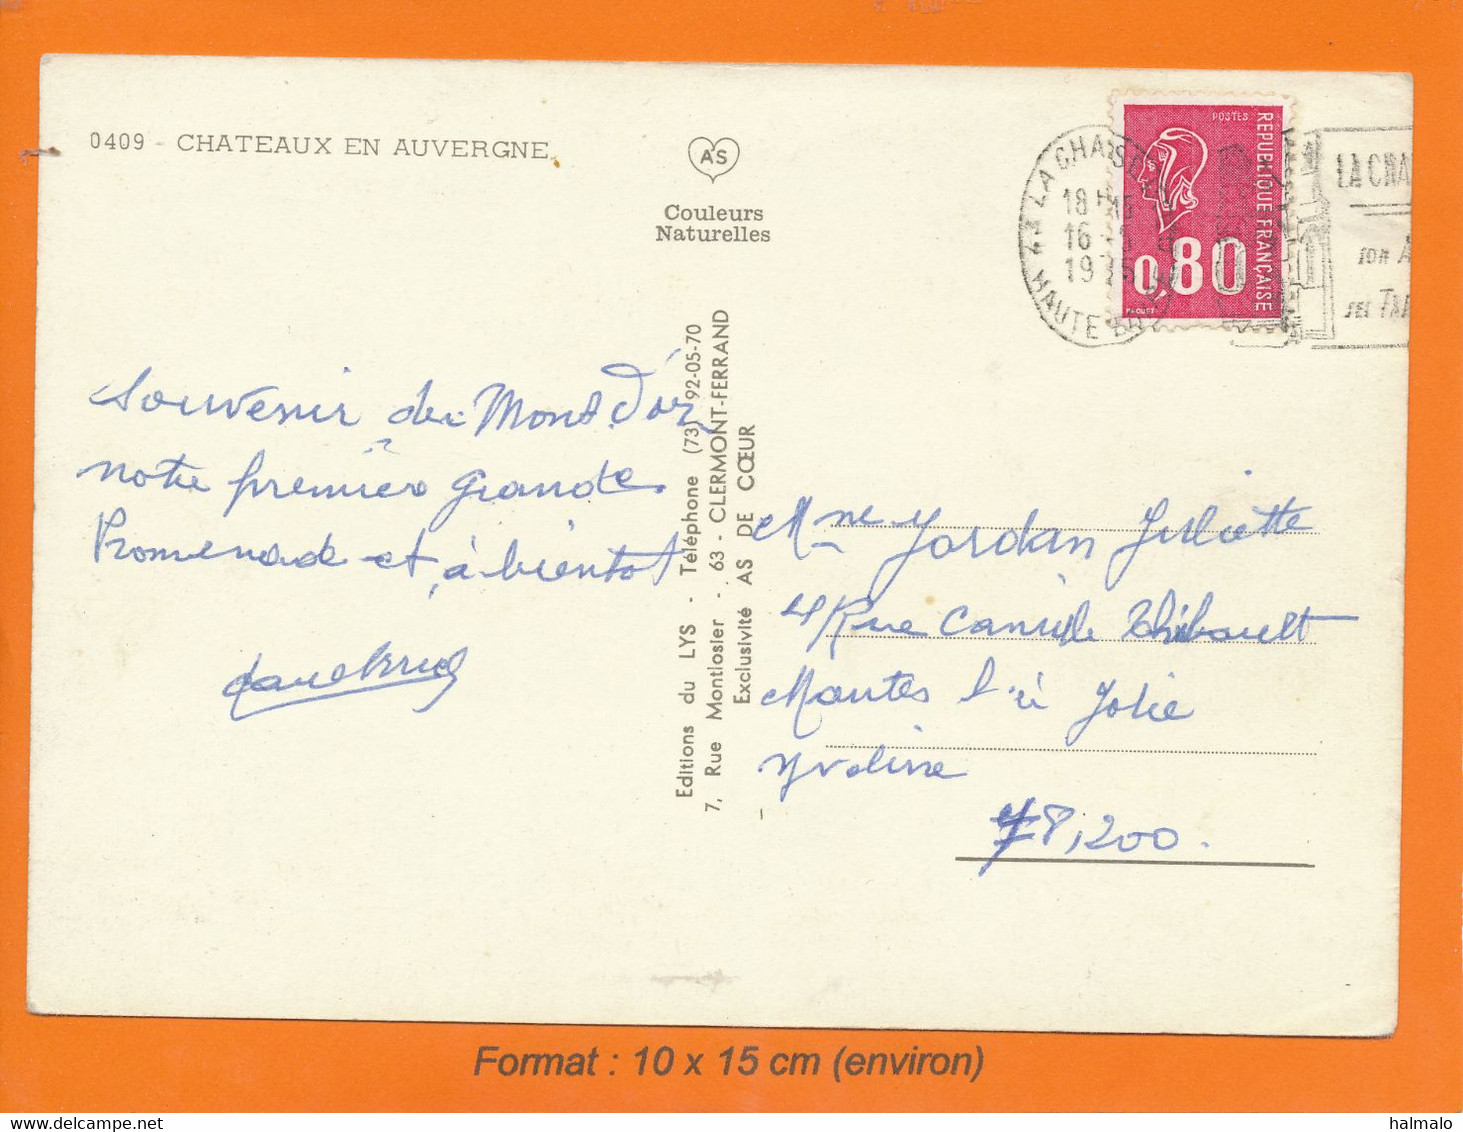 0409 - CHATEAUX EN AUVERGNE
AS
Couleurs
Naturelles
LA CHAISE
18 H 15
16
1975
HAUTE
POSTES
REPUBLIQUE FRANÇAISE
0,80
LA CHA
SES
Souvenir du Mont d'or
notre première grande
Promenade et à bientot
Editions du LYS - Téléphone (73) 92-05-70
7, Rue Montlosier - 63 - CLERMONT-FERRAND
Exclusivité AS DE CŒUR
Mme Jordan Juliette
4 Rue Camille Thibault
Mantes l'à Jolie
Yveline
78,200.
Format : 10 x 15 cm (environ)
halmalo